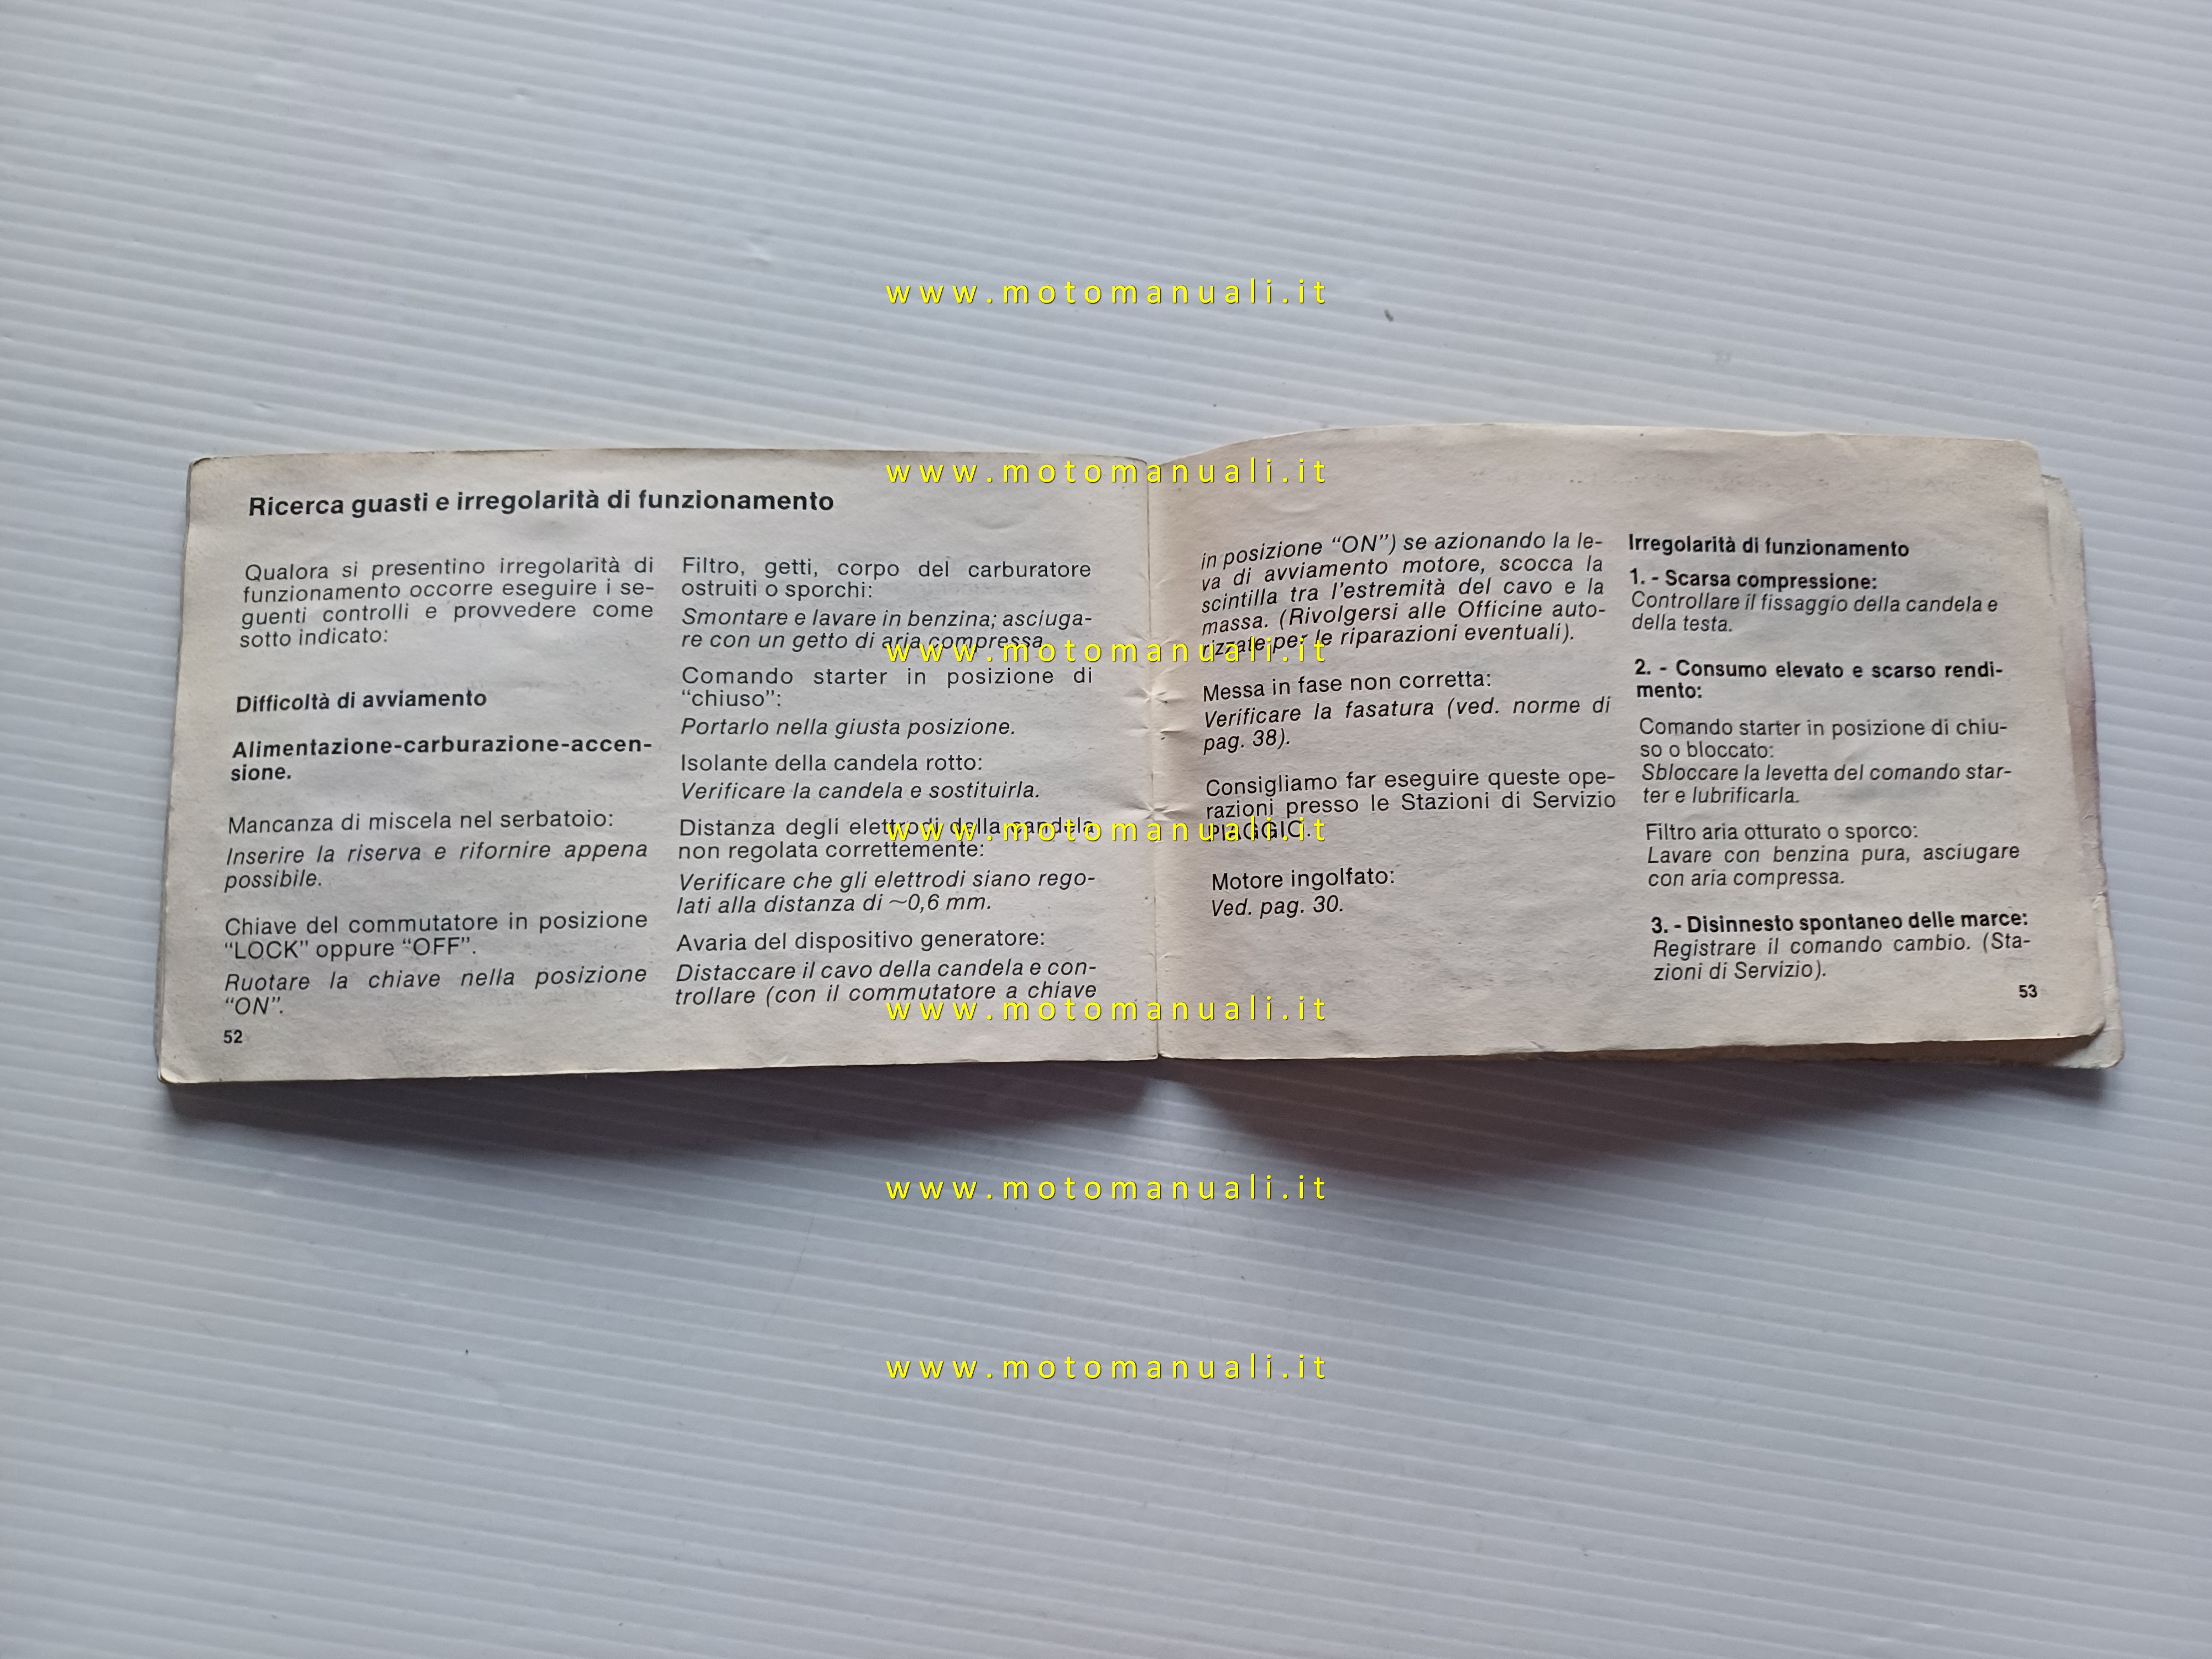 www.motomanuali.it
www.motomanuali.it
Ricerca guasti e irregolarità di funzionamento
Qualora si presentino irregolarità di
funzionamento occorre eseguire i se-
guenti controlli e provvedere come
sotto indicato:
Difficoltà di avviamento
Alimentazione-carburazione-accen-
sione.
Mancanza di miscela nel serbatoio:
Inserire la riserva e rifornire appena
possibile.
Chiave del commutatore in posizione
“LOCK” oppure “OFF”.
Ruotare la chiave nella posizione
“ON”.
52
Filtro, getti, corpo del carburatore
ostruiti o sporchi:
Smontare e lavare in benzina; asciuga-
re con un getto di aria compressa
www.motomanuali.it
Comando starter in posizione di
“chiuso”:
Portarlo nella giusta posizione.
Isolante della candela rotto:
Verificare la candela e sostituirla.
Distanza degli elettrodi della candela
www.motomanuali.it
non regolata correttemente:
Verificare che gli elettrodi siano rego-
lati alla distanza di ~0,6 mm.
Avaria del dispositivo generatore:
Distaccare il cavo della candela e con-
trollare (con il commutatore a chiave
www.motomanuali.it
in posizione “ON”) se azionando la le-
va di avviamento motore, scocca la
scintilla tra l’estremità del cavo e la
massa. (Rivolgersi alle Officine auto-
rizzate per le riparazioni eventuali).
Messa in fase non corretta:
Verificare la fasatura (ved. norme di
pag. 38).
Consigliamo far eseguire queste ope-
razioni presso le Stazioni di Servizio
PIAGGIO.
Motore ingolfato:
Ved. pag. 30.
Irregolarità di funzionamento
1. - Scarsa compressione:
Controllare il fissaggio della candela e
della testa.
2. - Consumo elevato e scarso rendi-
mento:
Comando starter in posizione di chiu-
so o bloccato:
Sbloccare la levetta del comando star-
ter e lubrificarla.
Filtro aria otturato o sporco:
Lavare con benzina pura, asciugare
con aria compressa.
3. - Disinnesto spontaneo delle marce:
Registrare il comando cambio. (Sta-
zioni di Servizio).
53
www.motomanuali.it
www.motomanuali.it